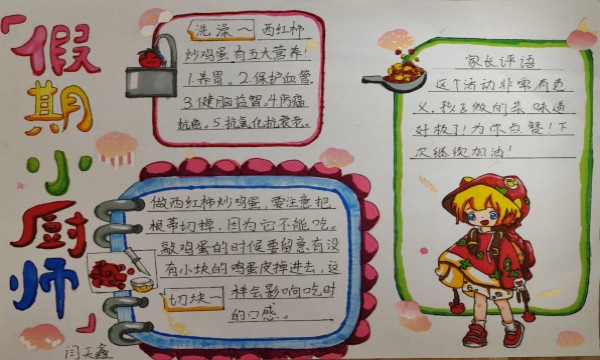 「假期小厨师」
洗澡~ 西红柿
炒鸡蛋有五大营养!
1.养胃。2.保护血管.
3.健脑益智.4.防癌
抗癌。5.抗氧化抗衰老。
做西红柿炒鸡蛋,要注意把
根蒂切掉,因为它不能吃。
敲鸡蛋的时候要留意有没
有小块的鸡蛋皮掉进去,这
切块~ 样会影响吃时
的口感。
家长评语
这个活动非常有意
义,孩子做的菜 味道
好极了!为你点赞!下
次继续加油!
闫天鑫